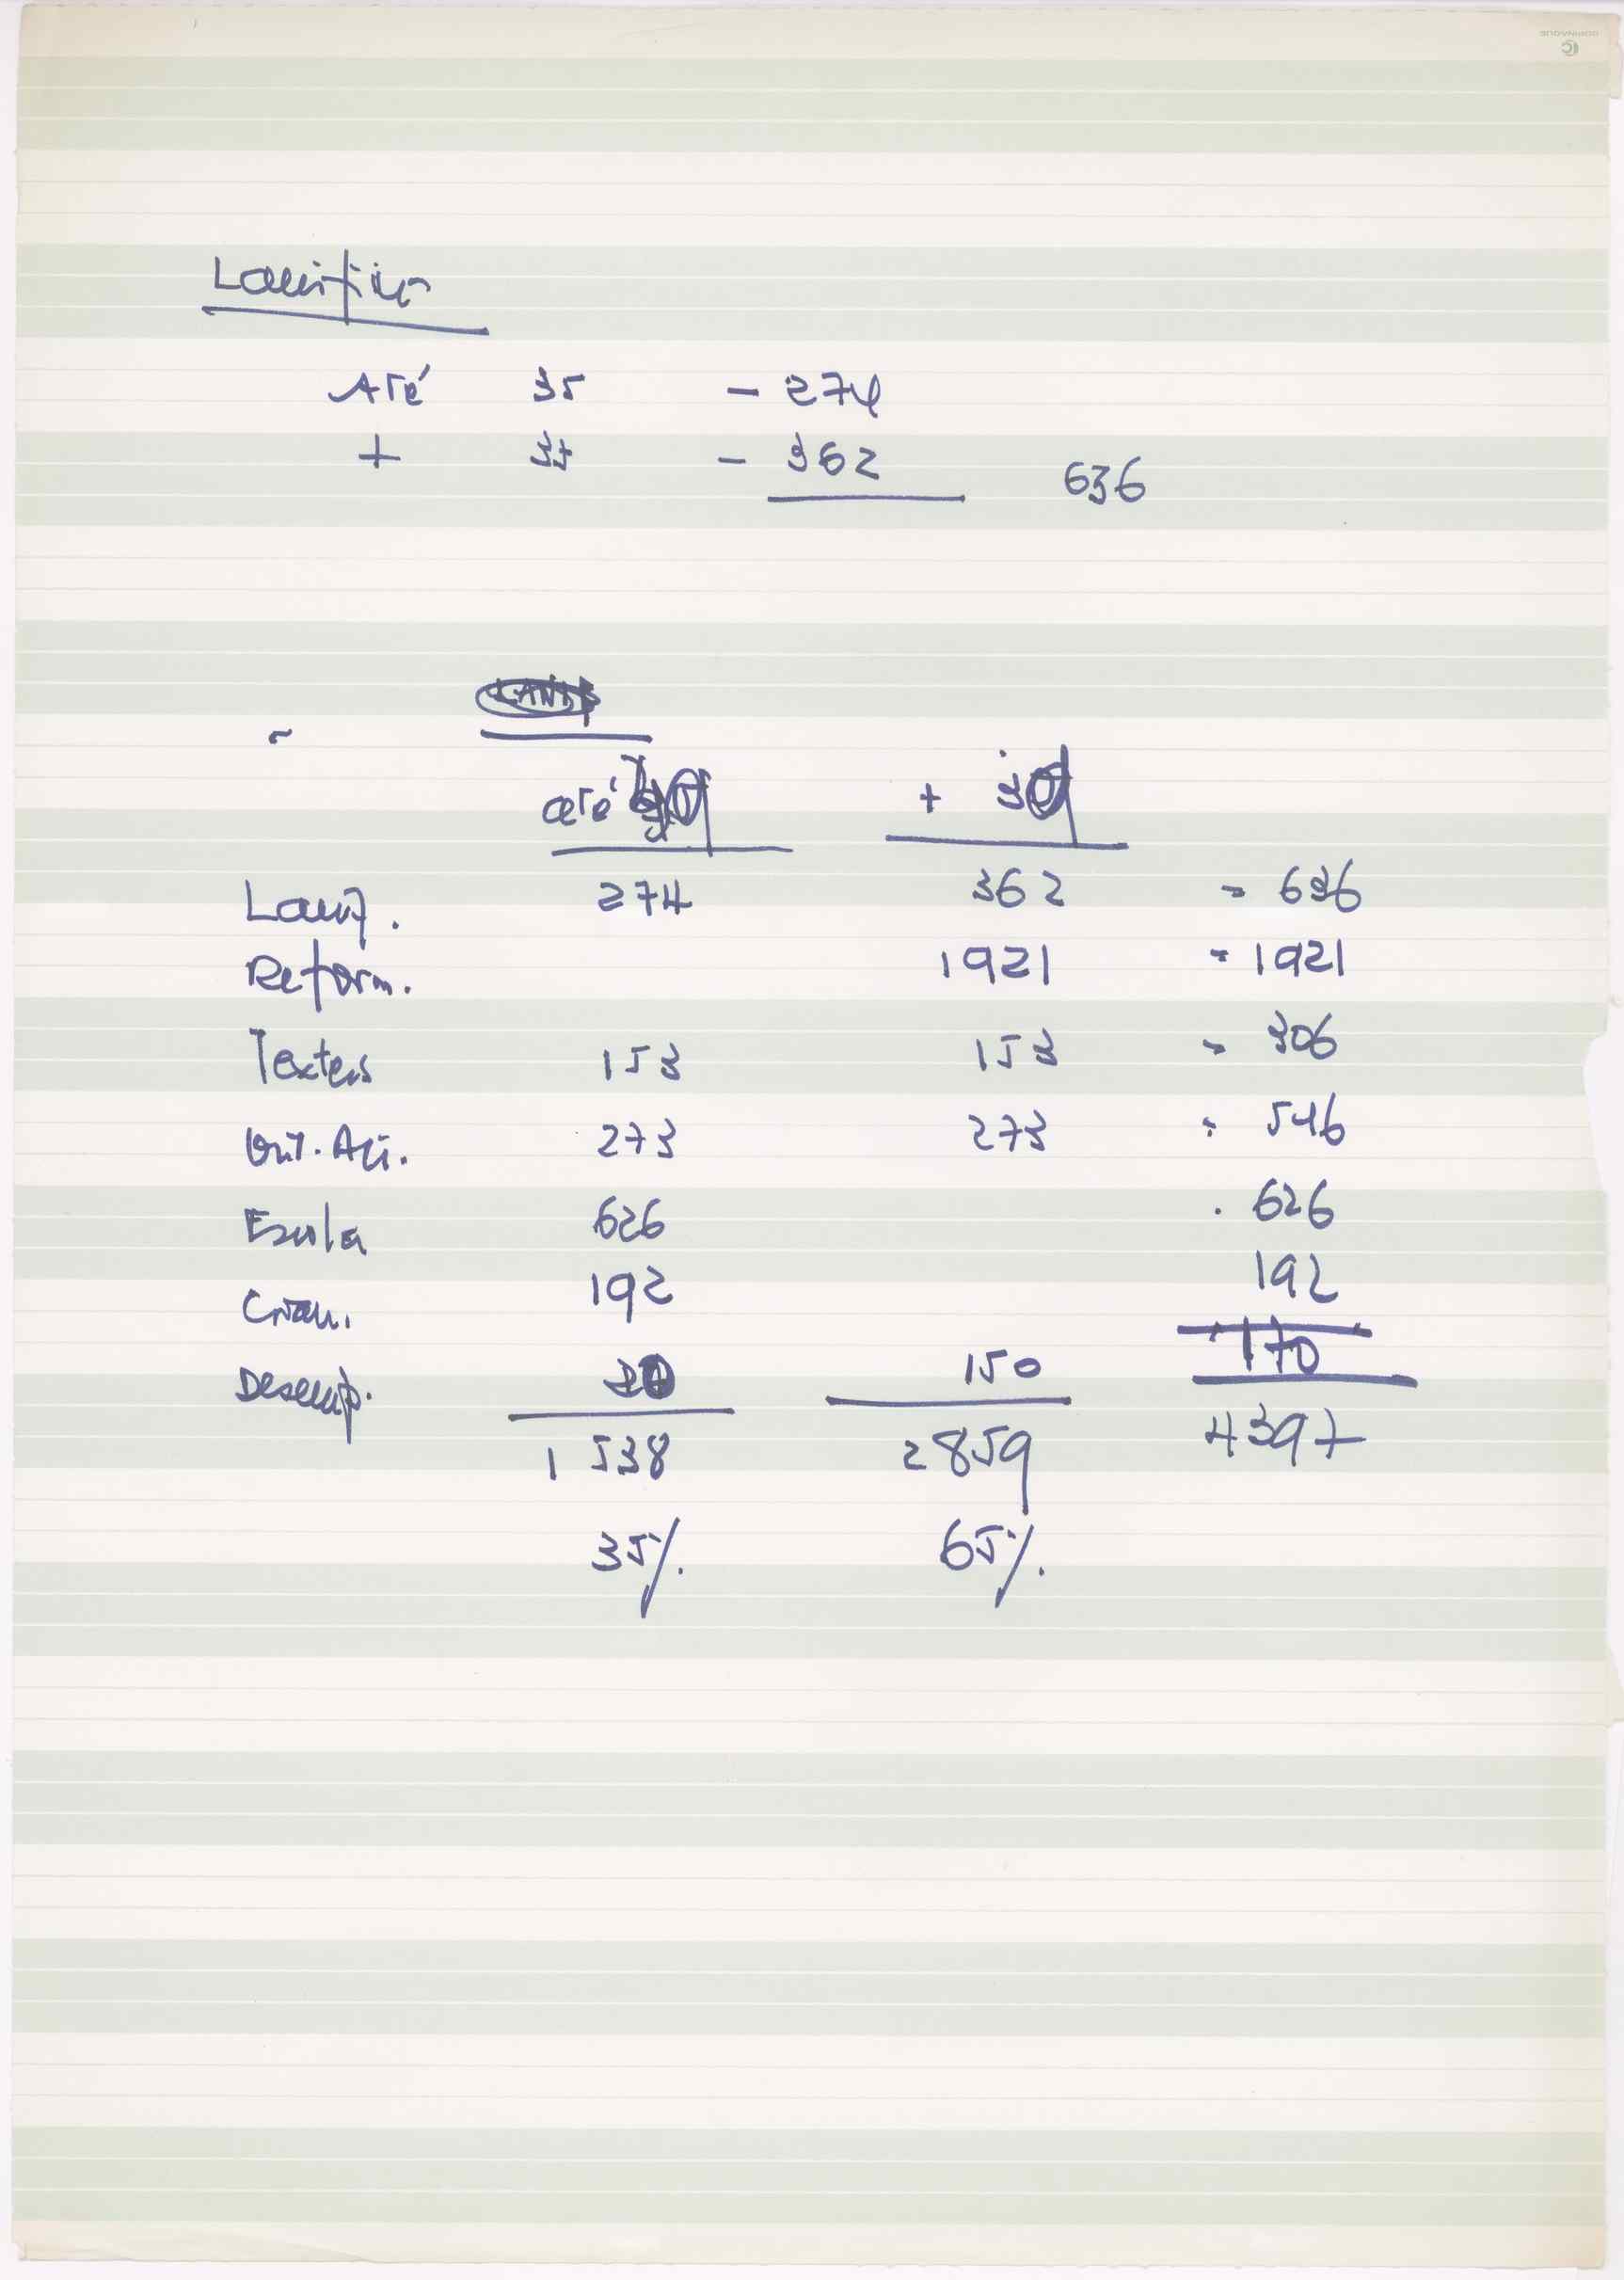 Lanifício
Até 35 - 274
+ 35 - 362
636
até
+ 39
Lanif. 274 362 = 636
Reform. 1921 = 1921
Texteis 153 153 = 306
Out. Act. 273 273 = 546
Escola 626 626
Crian. 192 192
Desemp. 20 150 170
1538 2859 4397
35% 65%